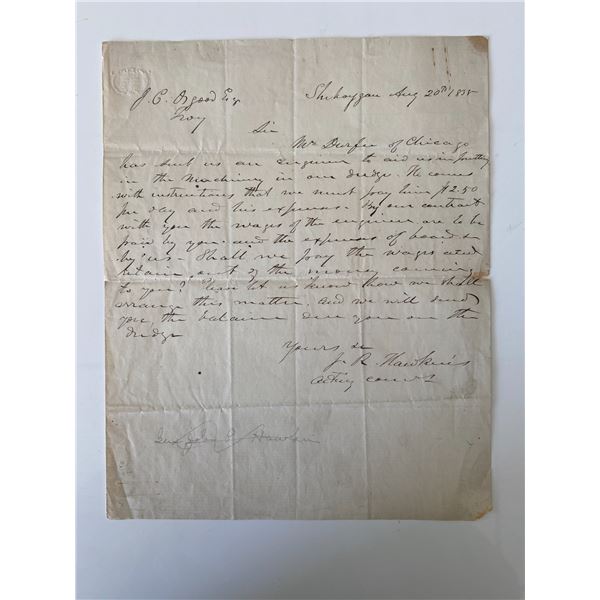 J. C. Osgood Esq
Troy
Sheboygan Aug 20th 185
Sir
Mr Durfee of Chicago
has sent us an engineer to aid us in putting
in the machinery in our dredge. He comes
with instructions that we must pay him $2.50
per day and his expenses. By our contract
with you the wages of the engineer are to be
paid by you and the expenses of board &c
by us. Shall we pay the wages and
retain out of the money coming
to you? Please let us know how we shall
arrange this matter, and we will send
you the balance due you on the
dredge
Yours &c
J. R. Hawkins
Acting